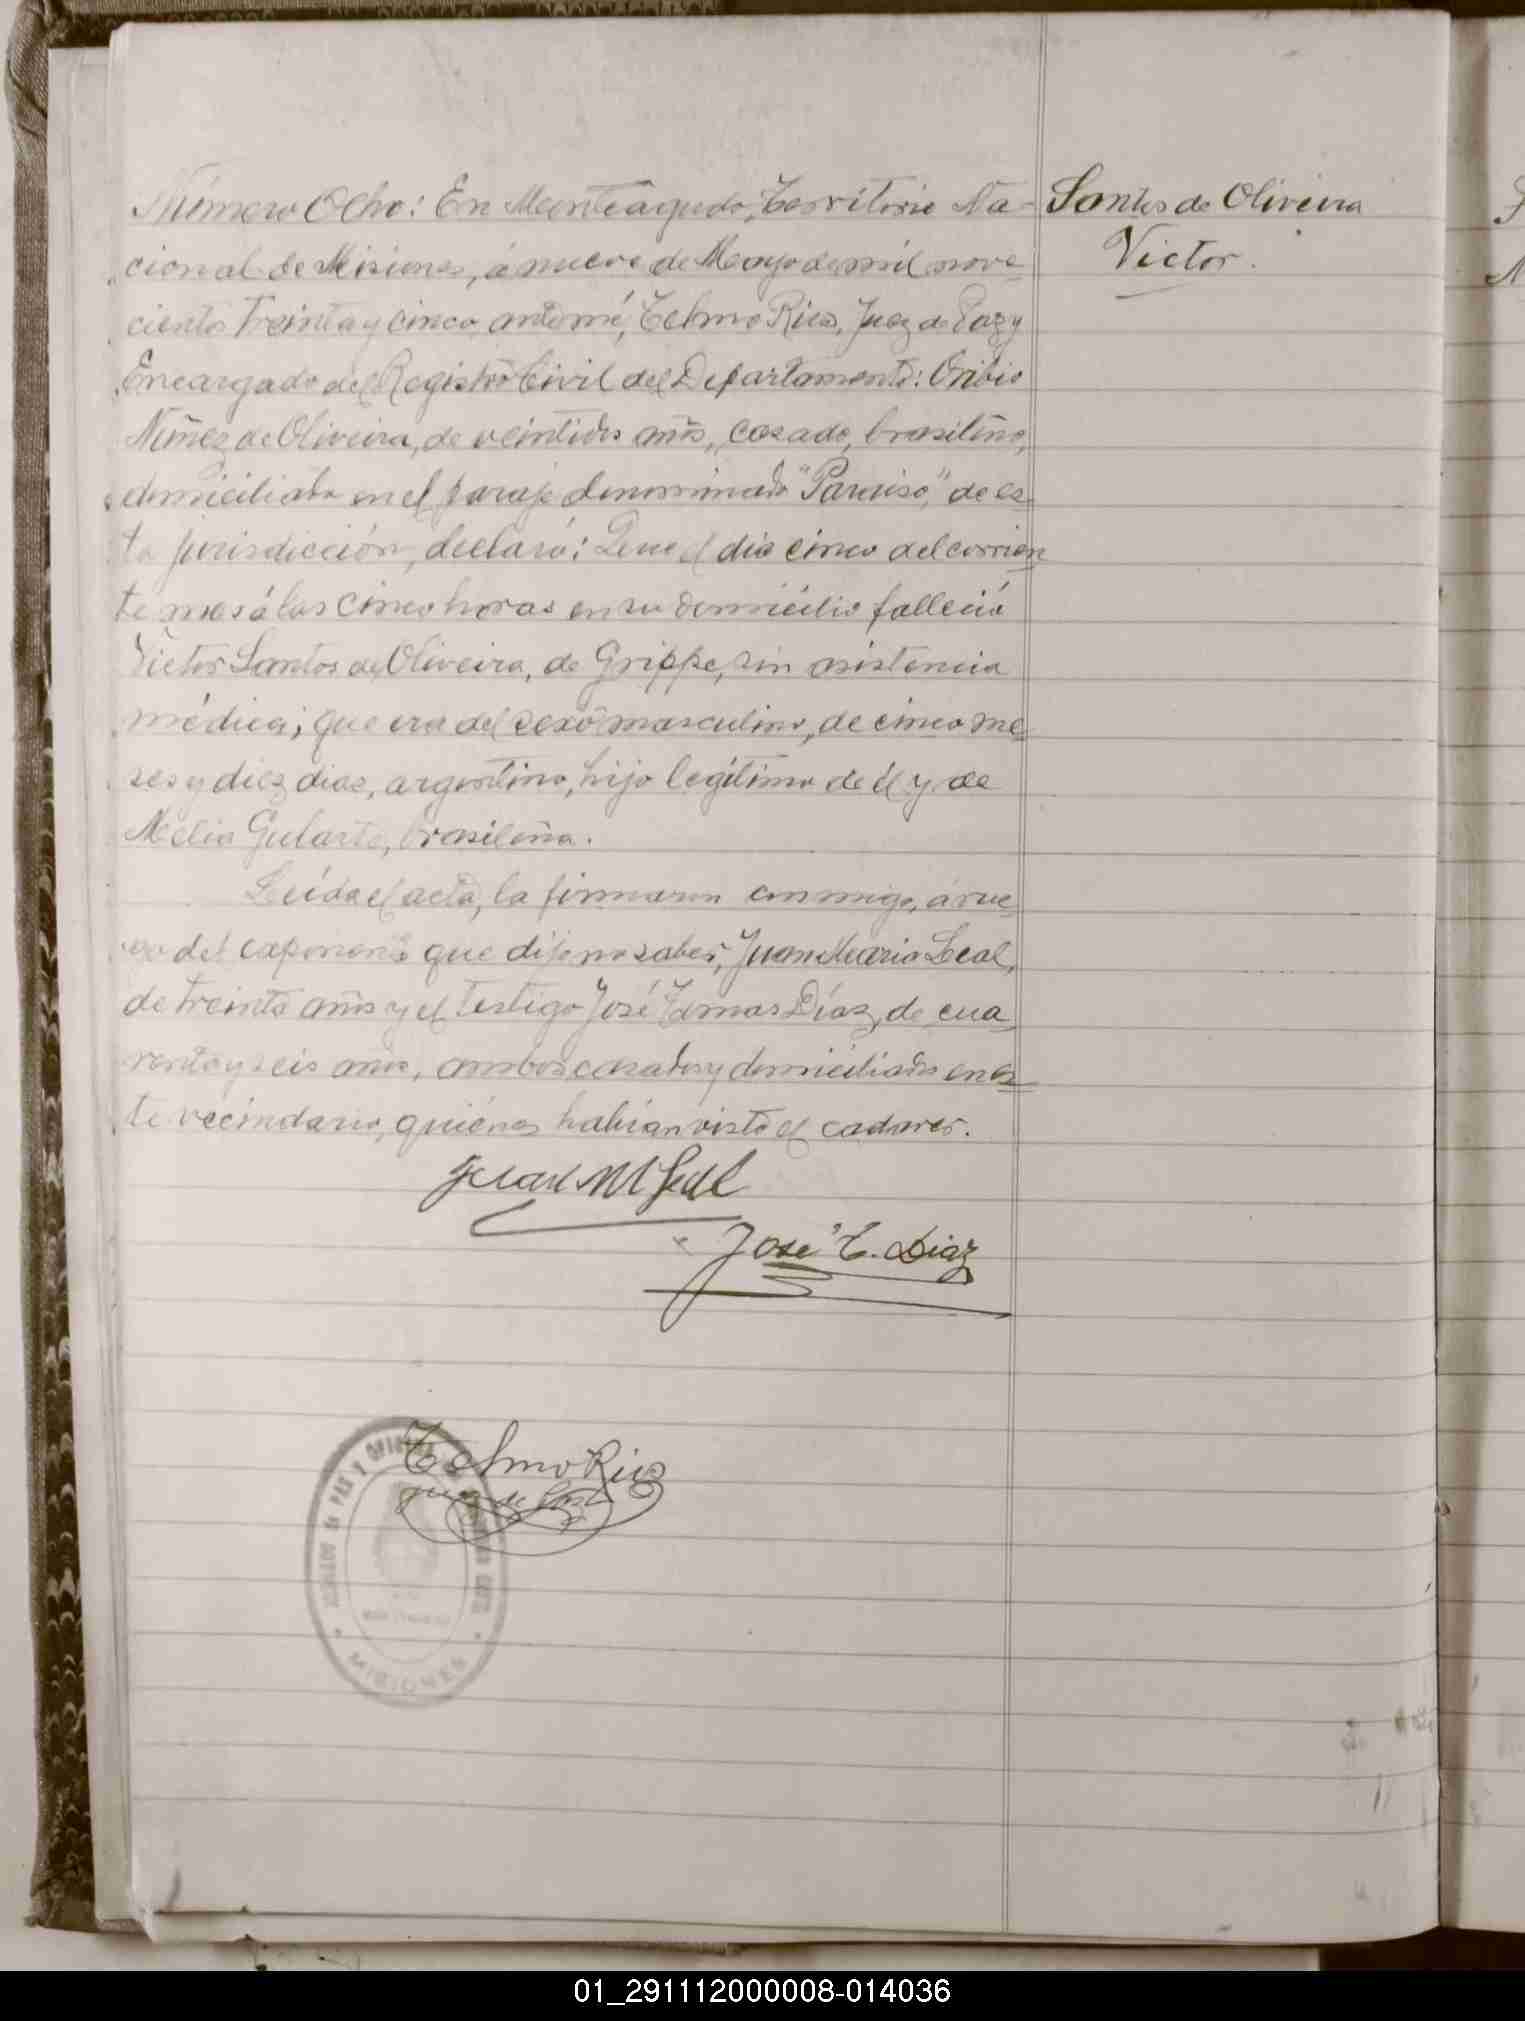 Número Ocho: En Monteagudo, Territorio Na-
cional de Misiones, á nueve de Mayo de mil nove-
cientos treinta y cinco, ante mí, Telmo Rico, Juez de Paz y
Encargado del Registro Civil del Departamento: Oribio
Nuñez de Oliveira, de veintidos años, casado, brasileño,
domiciliado en el paraje denominado "Paraiso", de es-
ta jurisdicción, declaró: Que el dia cinco del corrien
te mes á las cinco horas en su domicilio falleció
Victor Santos de Oliveira, de Grippe, sin asistencia
médica; que era del sexo masculino, de cinco me-
ses y diez dias, argentino, hijo legítimo de él y de
Melia Gularte, brasileña.
Leída el acta, la firmaron conmigo, á rue-
go del exponente que dijo no saber, Juan Maria Leal,
de treinta años y el testigo José Tomas Díaz, de cua-
renta y seis años, ambos casados y domiciliados en es-
te vecindario, quiénes habían visto el cadaver.
Juan M Leal
José T. Diaz
Telmo Rico
Juez de Paz
JUZGADO DE PAZ Y OFICINA
MISIONES
Santos de Oliveira
Victor.
01_291112000008-014036